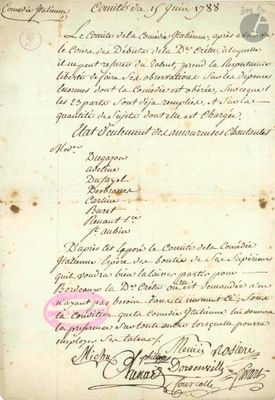 Comédie Italienne
Comité du 15 Juin 1788
Le Comité de la Comédie Italienne, après avoir vu
le Cours des Débuts de la Dlle Crétu, à laquelle
il ne peut refuser du talent, prend la Respectueuse
liberté de faire des observations sur les dépenses
énormes dont la Comédie est obérée, sur ce que
les 23 parts sont déja remplies, et sur la
quantité de Sujets dont elle est Chargée.
Etat seulement des amoureuses Chantantes
Mesd.
Dugazon
Adeline
Dufayel
Desbrosses
Carline
Buret
Renaut
St aubin
D'après cet Exposé le Comité de la Comédie
Italienne espère des bontés de ses Supérieurs
qu'il voudra bien laisser partir pour
Bordeaux la Dlle Crétu où elle est demandée n'en
n'ayant pas besoin dans le moment Ci, sous
la Condition que la Comédie Italienne lui donnera
la préférence sur toute autre lorsqu'elle pourra
employer ses talens.
Michu
philippe
Menier
Rosiere
Chenard
Dorsonville
Courcelle